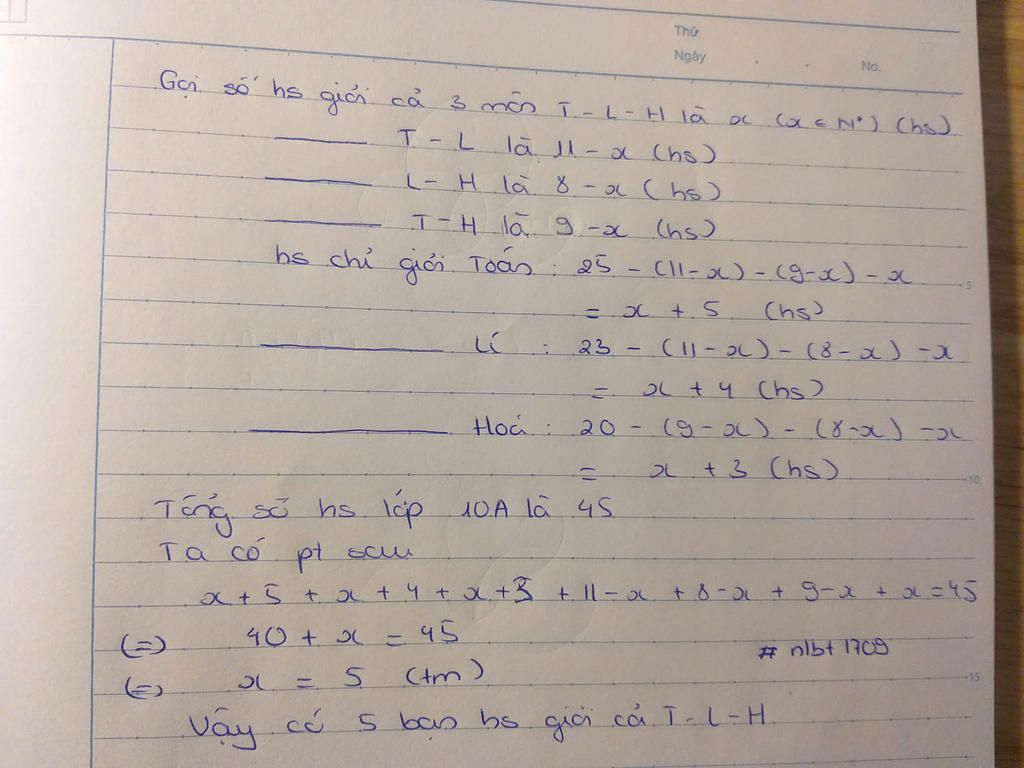 Thứ
Ngày . . No.
Gọi số hs giỏi cả 3 môn T - L - H là x (x ∈ N*) (hs)
——— T - L là 11 - x (hs)
——— L - H là 8 - x (hs)
——— T - H là 9 - x (hs)
hs chỉ giỏi Toán : 25 - (11 - x) - (9 - x) - x
= x + 5 (hs)
——— Lí : 23 - (11 - x) - (8 - x) - x
= x + 4 (hs)
——— Hoá : 20 - (9 - x) - (8 - x) - x
= x + 3 (hs)
Tổng số hs lớp 10A là 45
Ta có pt sau
x + 5 + x + 4 + x + 3 + 11 - x + 8 - x + 9 - x + x = 45
(=) 40 + x = 45
# nlbt1709
(=) x = 5 (tm)
Vậy có 5 bạn hs giỏi cả T - L - H
5
10
15